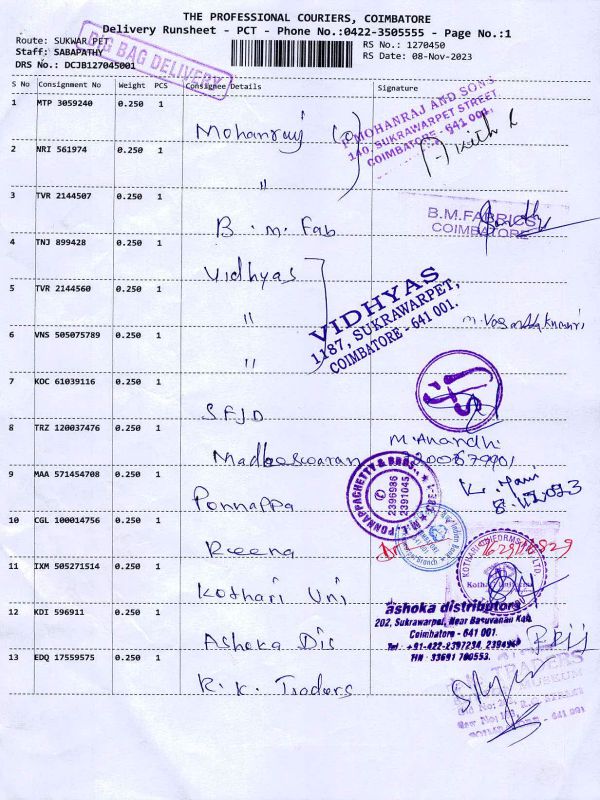 THE PROFESSIONAL COURIERS, COIMBATORE
Delivery Runsheet - PCT - Phone No.:0422-3505555 - Page No.:1
Route: SUKWAR PET
RS No.: 1270450
Staff: SABAPATHY
RS Date: 08-Nov-2023
DRS No.: DCJB127045001
BIG BAG DELIVERY
S No Consignment No Weight PCS Consignee Details Signature
1 MTP 3059240 0.250 1 Mohanraj (o)
P. MOHANRAJ AND SONS
140, SUKRAWARPET STREET,
COIMBATORE - 641 001.
2 NRI 561974 0.250 1 "
3 TVR 2144507 0.250 1 B.M. Fab
B.M.FABRICS
COIMBATORE
4 TNJ 899428 0.250 1 Vidhyas
VIDHYAS
1187, SUKRAWARPET,
COIMBATORE - 641 001.
5 TVR 2144560 0.250 1 "
6 VNS 505075789 0.250 1 "
7 KOC 61039116 0.250 1 S.F.J.D
8 TRZ 120037476 0.250 1 Madheswaran
M. Anandhi
9 MAA 571454708 0.250 1 Ponnappa
M.E. PONNAPPACHETTY & BROS.
2396986
2391045
10 CGL 100014756 0.250 1 Reena
11 IXM 505271514 0.250 1 Kothari Uni
Kothari
12 KDI 596911 0.250 1 Ashoka Dis
ashoka distributors
202, Sukrawarpet, Near Basuvanan Koil,
Coimbatore - 641 001.
13 EDQ 17559575 0.250 1 R.K. Traders